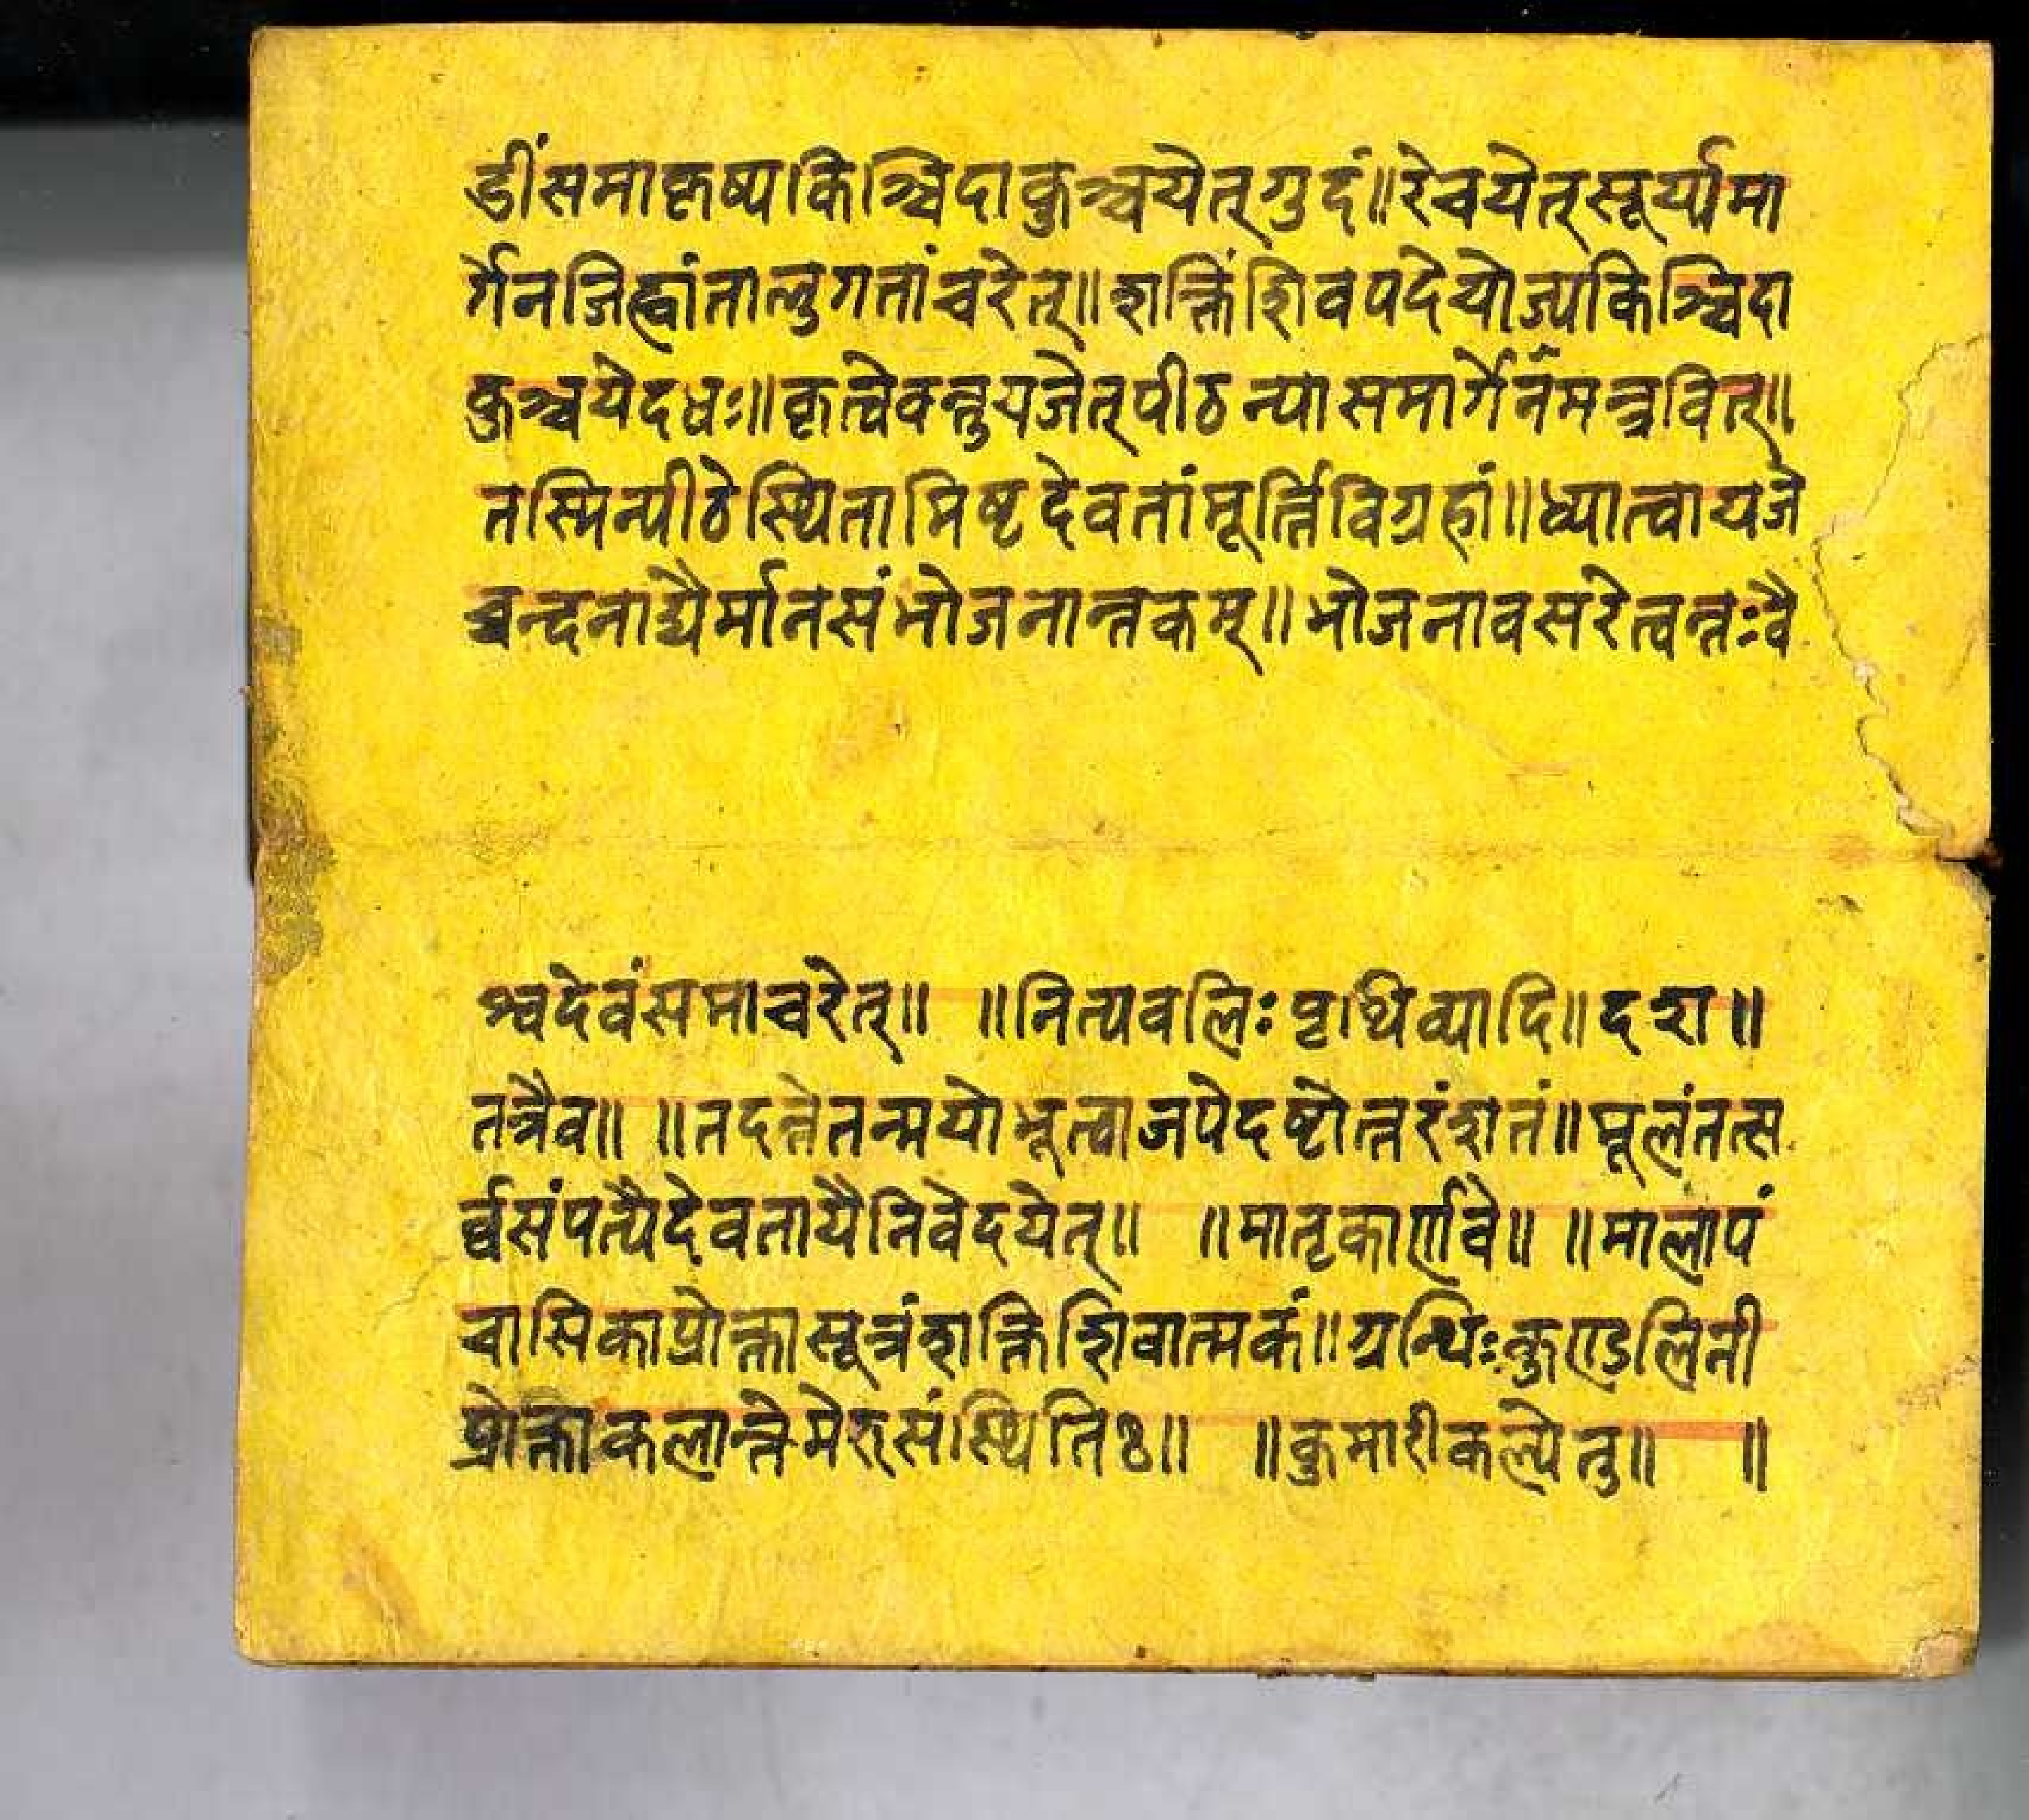 डींसमाकृष्यकिञ्चिदाकुञ्चयेत्गुदं॥रेचयेत्सूर्य्यमा
र्गेनजिह्वांतालुगतांचरेत्॥शक्तिंशिवपदेयोज्यकिञ्चिदा
कुञ्चयेदधः॥कृत्वेवन्तुयजेत्पीठन्यासमार्गेनमन्त्रवित्॥
तस्मिन्पीठेस्थितामिष्टदेवतांमूर्त्तिविग्रहां॥ध्यात्वायजे
च्चन्दनाद्यैर्मानसंभोजनान्तकम्॥भोजनावसरेत्वन्तःवै
श्वदेवंसमाचरेत्॥ ॥नित्यवलिःपृथिव्यादि॥दश॥
तत्रैव॥ ॥तदन्तेतन्मयोभूत्वाजपेदष्टोत्तरंशतं॥मूलंतत्स
र्व्वसंपत्यैदेवतायैनिवेदयेत्॥ ॥मातृकार्णवे॥ ॥मालापं
चासिकाप्रोक्तासूत्रंशक्तिशिवात्मकं॥ग्रन्थिःकुण्डलिनी
प्रोक्ताकलान्तेमेरुसंस्थितिः॥ ॥कुमारीकल्पेतु॥ ॥